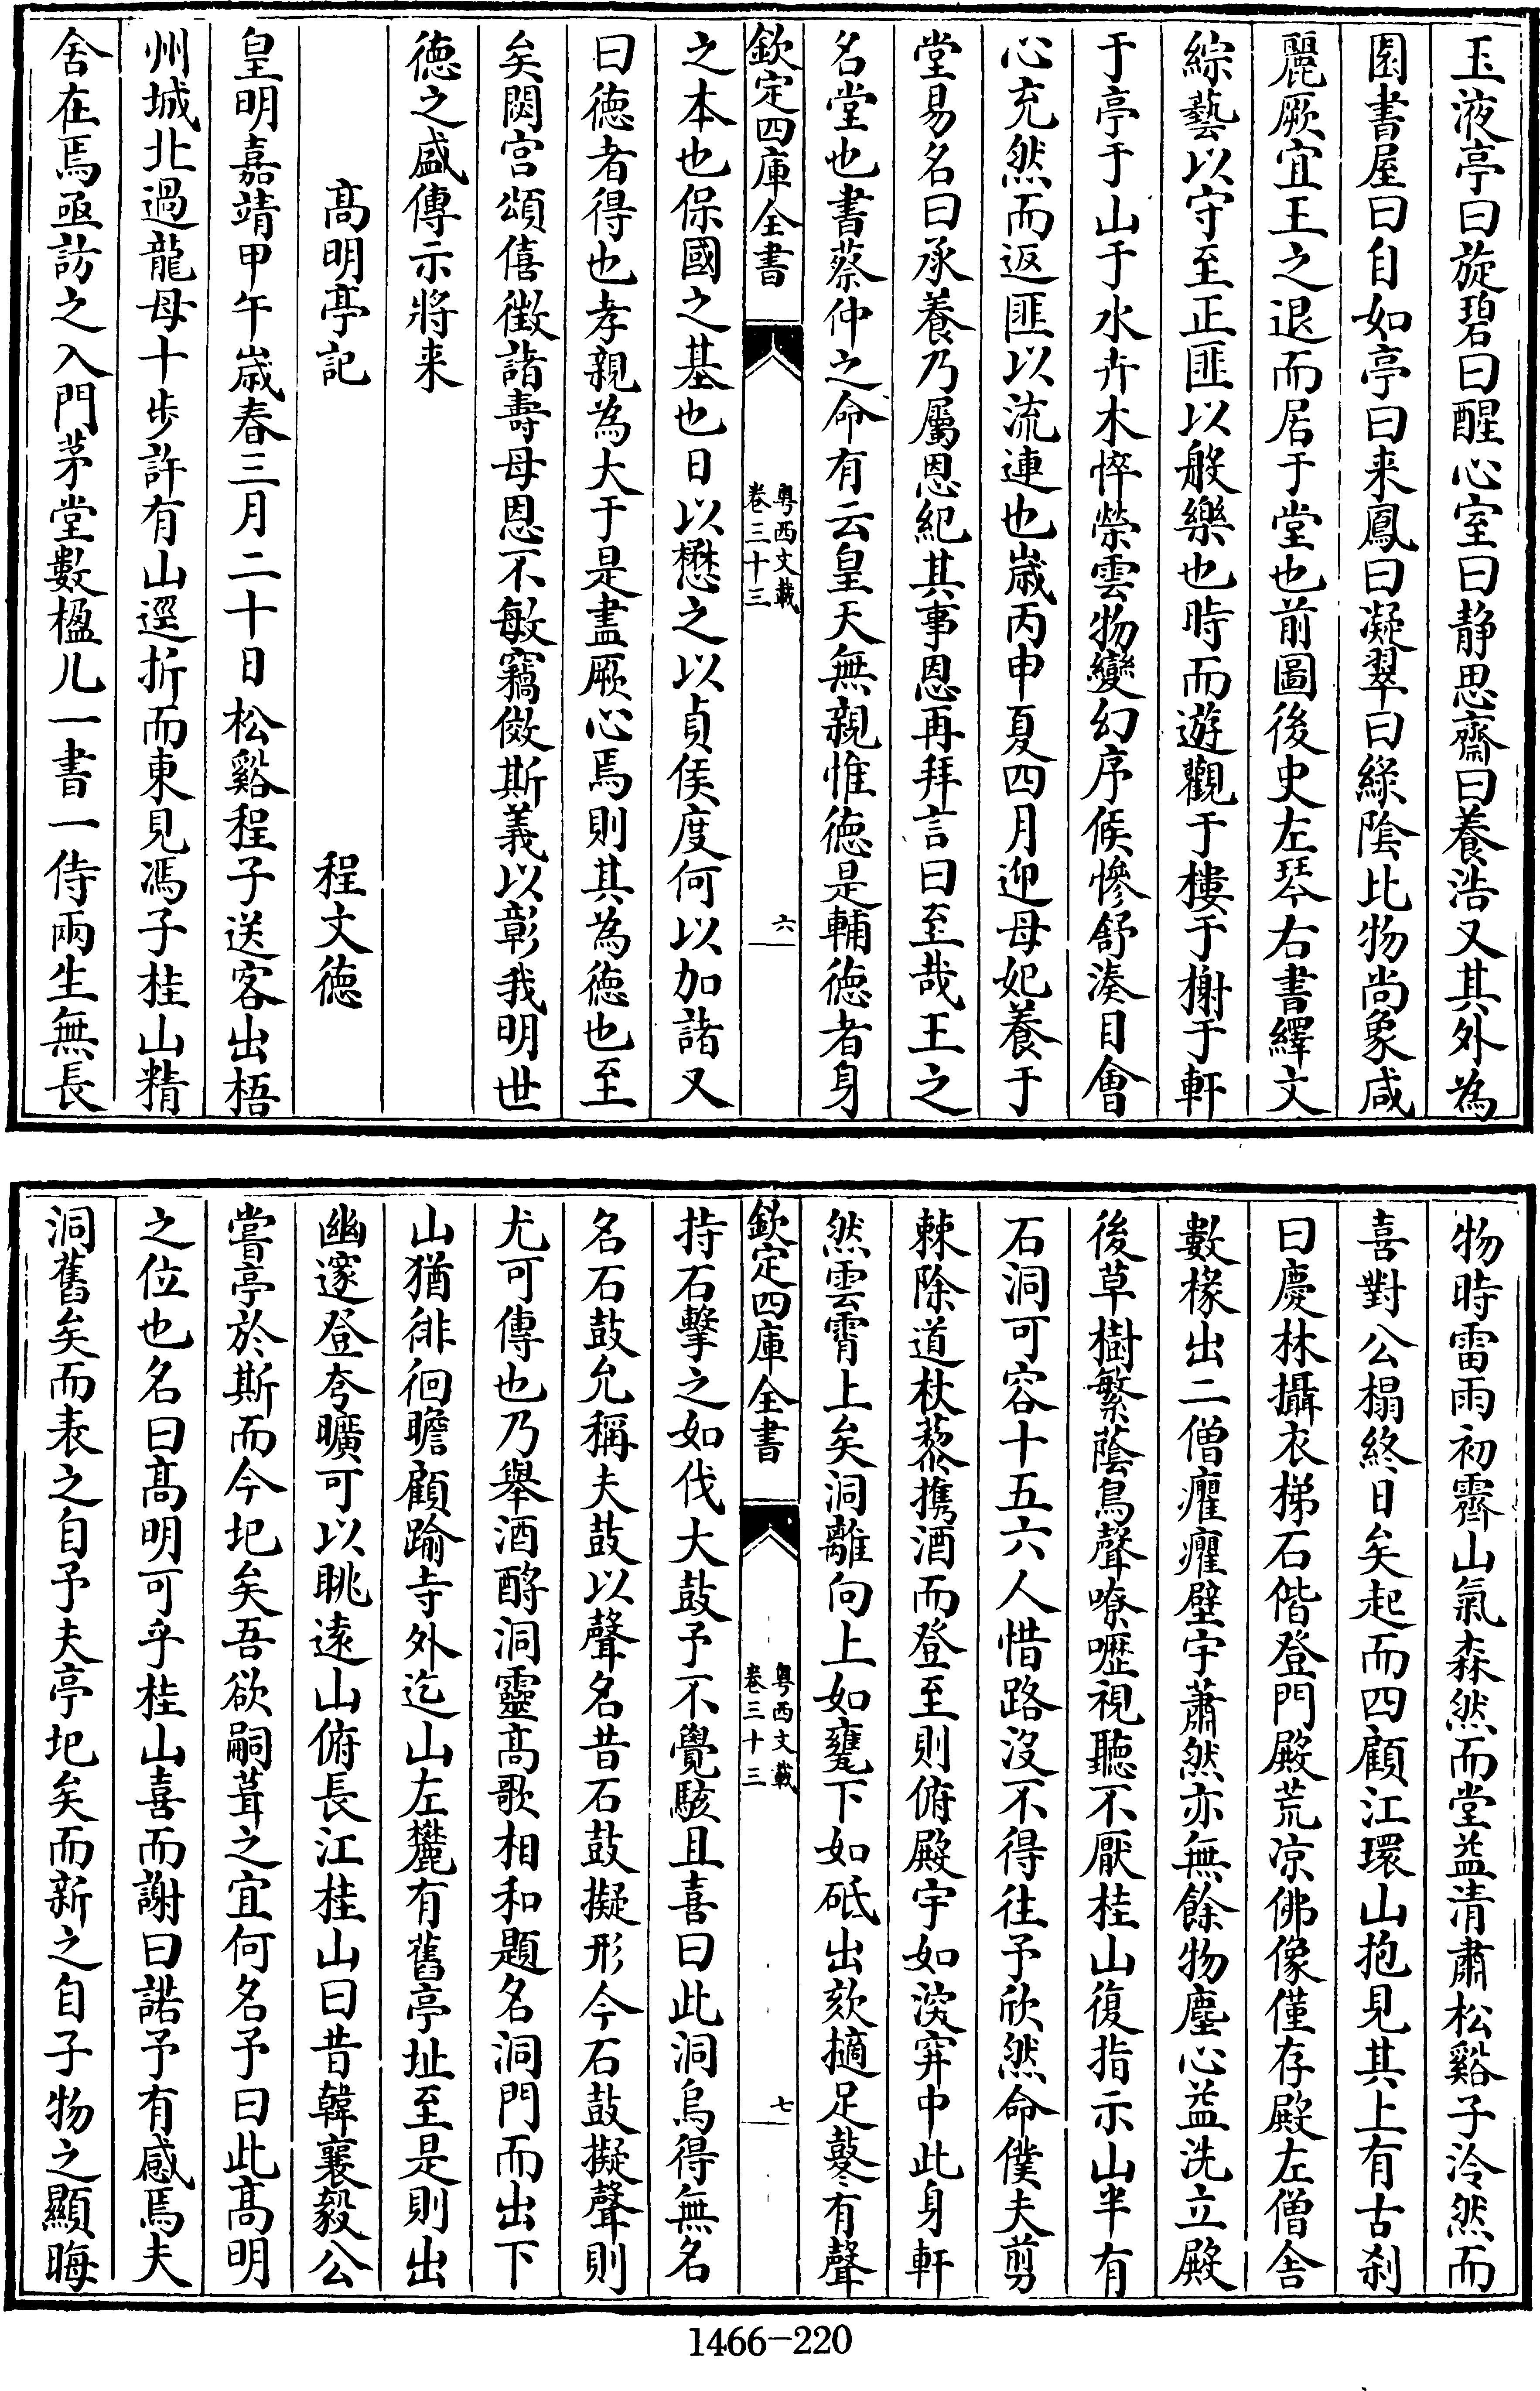 玉液亭曰旋碧曰醒心室曰静思齋曰養浩又其外為
園書屋曰自如亭曰来鳳曰凝翠曰綠陰比物尚象咸
麗厥宜王之退而居于堂也前圖後史左琴右書繹文
綜藝以守至正匪以般樂也時而遊觀于樓于榭于軒
于亭于山于水卉木悴榮雲物變幻序候慘舒湊目會
心充然而返匪以流連也歳丙申夏四月迎母妃養于
堂易名曰承養乃屬恩紀其事恩再拜言曰至哉王之
名堂也書蔡仲之命有云皇天無親惟徳是輔徳者身
欽定四庫全書
粤西文載
卷三十三
六
之本也保國之基也日以懋之以貞侯度何以加諸又
曰徳者得也孝親為大于是盡厥心焉則其為徳也至
矣閟宫頌僖徵諸壽母恩不敏竊倣斯義以彰我明世
徳之盛傳示將来
高明亭記
程文徳
皇明嘉靖甲午歳春三月二十日松谿程子送客出梧
州城北過龍母十步許有山逕折而東見馮子桂山精
舍在焉亟訪之入門茅堂數楹几一書一侍兩生無長
物時雷雨初霽山氣森然而堂益清肅松谿子泠然而
喜對公榻終日矣起而四顧江環山抱見其上有古刹
曰慶林攝衣梯石偕登門殿荒凉佛像僅存殿左僧舍
數椽出二僧癯癯壁宇蕭然亦無餘物塵心益洗立殿
後草樹繁蔭鳥聲嘹嚦視聽不厭桂山復指示山半有
石洞可容十五六人惜路沒不得往予欣然命僕夫剪
棘除道杖藜携酒而登至則俯殿宇如湥穽中此身軒
然雲霄上矣洞離向上如甕下如砥出欬擿足鼕有聲
欽定四庫全書
粤西文載
卷三十三
七
持石擊之如伐大鼓予不覺駭且喜曰此洞烏得無名
名石鼓允稱夫鼓以聲名昔石鼓擬形今石鼓擬聲則
尤可傳也乃舉酒酹洞靈高歌相和題名洞門而出下
山猶徘徊瞻顧踰寺外迄山左麓有舊亭址至是則出
幽邃登夸曠可以眺遠山俯長江桂山曰昔韓襄毅公
嘗亭於斯而今圮矣吾欲嗣葺之宜何名予曰此高明
之位也名曰高明可乎桂山喜而謝曰諾予有感焉夫
洞舊矣而表之自予夫亭圮矣而新之自子物之顯晦
1466-220